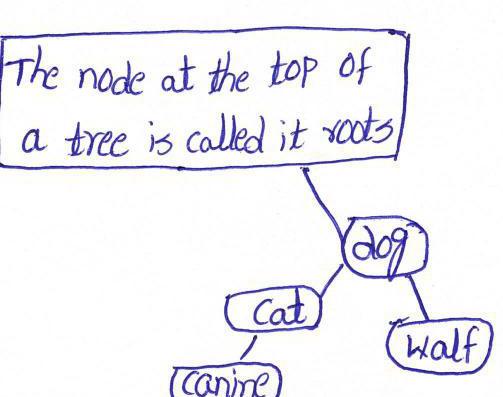 The node at the top of
a tree is called it roots
dog
cat
walf
canine